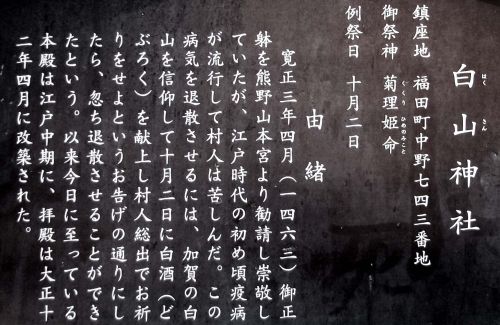 白山神社
はくさん
鎮座地 福田町中野七四三番地
御祭神 菊理姫命
くくりひめのみこと
例祭日 十月二日
由緒
寛正三年四月(一四六三)御正
躰を熊野山本宮より勧請し崇敬し
ていたが、江戸時代の初め頃疫病
が流行して村人は苦しんだ。この
病気を退散させるには、加賀の白
山を信仰して十月二日に白酒(ど
ぶろく)を献上し村人総出でお祈
りをせよというお告げの通りにし
たら、忽ち退散させることができ
たという。以来今日に至っている
本殿は江戸中期に、拝殿は大正十
二年四月に改築された。